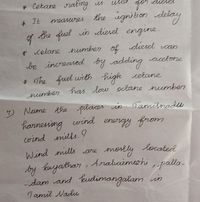 * Cetane rating is used for diesel
* It measures the ignition delay
of the fuel in diesel engine
* cetane number of diesel can
be increased by adding acetone
* The fuel with high cetane
number has low octane number
7) Name the places in Tamilnadu
harnessing wind energy from
wind mills?
Wind mills are mostly located
by kayathar, Aralvaimozhi, palla-
dam and kudimangalam in
Tamil Nadu